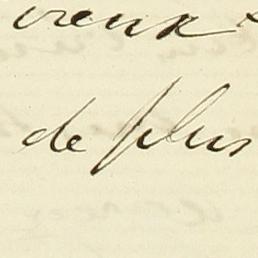 vieux
de plus